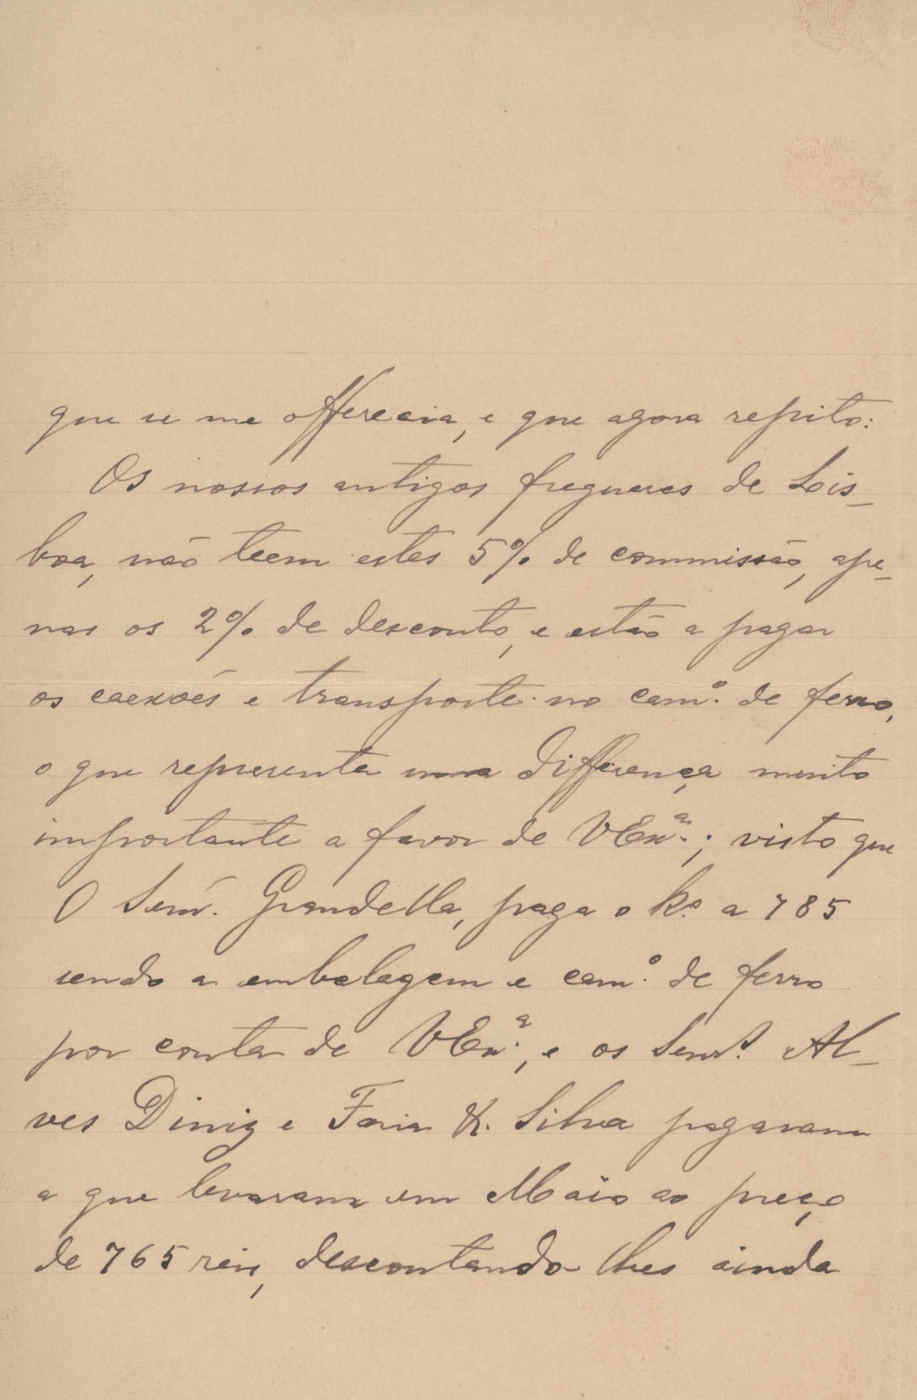 que se me offerecia, e que agora repito:
Os nossos antigos freguezes de Lis-
boa, não teem estes 5% de commissão, ape-
nas os 2% de desconto, e estão a pagar
os caexoés e transporte no camº. de ferro,
o que representa uma differença muito
importante a favor de VExª.; visto que
O Senr. Grandella, paga o kº a 785
sendo a embalagem e camº. de ferro
por conta de VExª., e os Senrs. Al-
ves Diniz e Faria & Silva pagaram
a que levaram em Maio ao preço
de 765 reis, descontando-lhes ainda